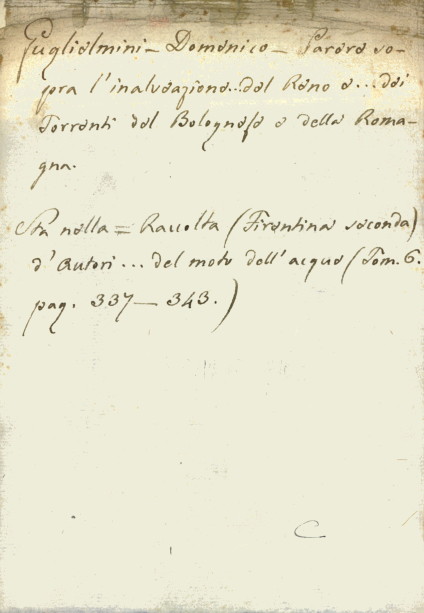 Guglielmini – Domenico – Parere so-
pra l'inalveazione .. del Reno e ... dei
Torrenti del Bolognese e della Roma-
gna.
Sta nella = Raccolta (Firentina seconda)
d'Autori ... del moto dell'acque (Tom. 6.
pag. 337 – 343.)
C